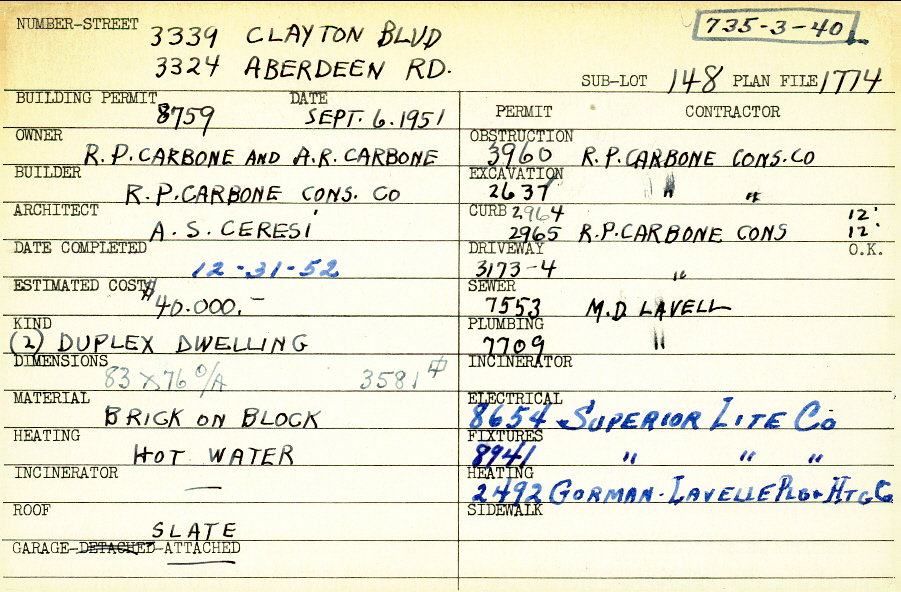 735-3-40
NUMBER-STREET 3339 CLAYTON BLVD
3324 ABERDEEN RD.
SUB-LOT 148 PLAN FILE 1774
BUILDING PERMIT 8759 DATE SEPT. 6. 1951
OWNER R.P. CARBONE AND A.R. CARBONE
BUILDER R.P. CARBONE CONS. CO
ARCHITECT A. S. CERESI
DATE COMPLETED 12-31-52
ESTIMATED COST $40.000.-
KIND (2) DUPLEX DWELLING
DIMENSIONS 83 x 76 O/A 3581
MATERIAL BRICK ON BLOCK
HEATING HOT WATER
INCINERATOR —
ROOF SLATE
GARAGE-DETACHED-ATTACHED
PERMIT CONTRACTOR
OBSTRUCTION 3960 R.P. CARBONE CONS. CO
EXCAVATION 2637 " "
CURB 2964 12'
2965 R.P. CARBONE CONS 12'
DRIVEWAY O.K.
3173-4 "
SEWER 7553 M.D. LAVELL
PLUMBING 7709 "
INCINERATOR
ELECTRICAL 8654 SUPERIOR LITE CO
FIXTURES 8941 " " "
HEATING 2492 GORMAN-LAVELLE PLG + HTG Co
SIDEWALK